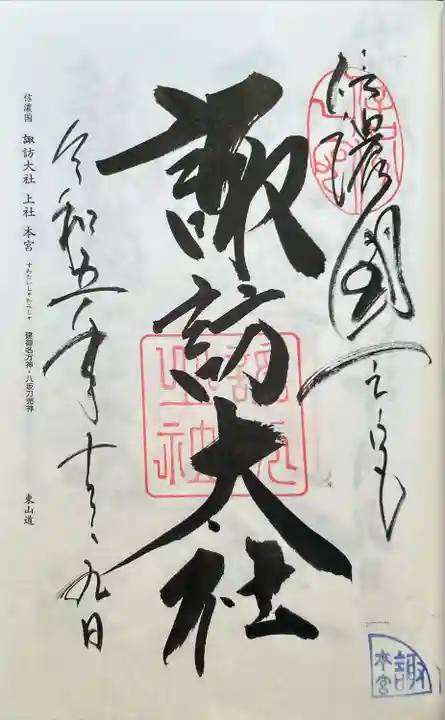 信濃國一之宮
諏訪大社
令和五年十月九日
信濃国 諏訪大社 上社 本宮 建御名方神・八坂刀売神 東山道
すわたいしゃかみしゃ
諏
本宮